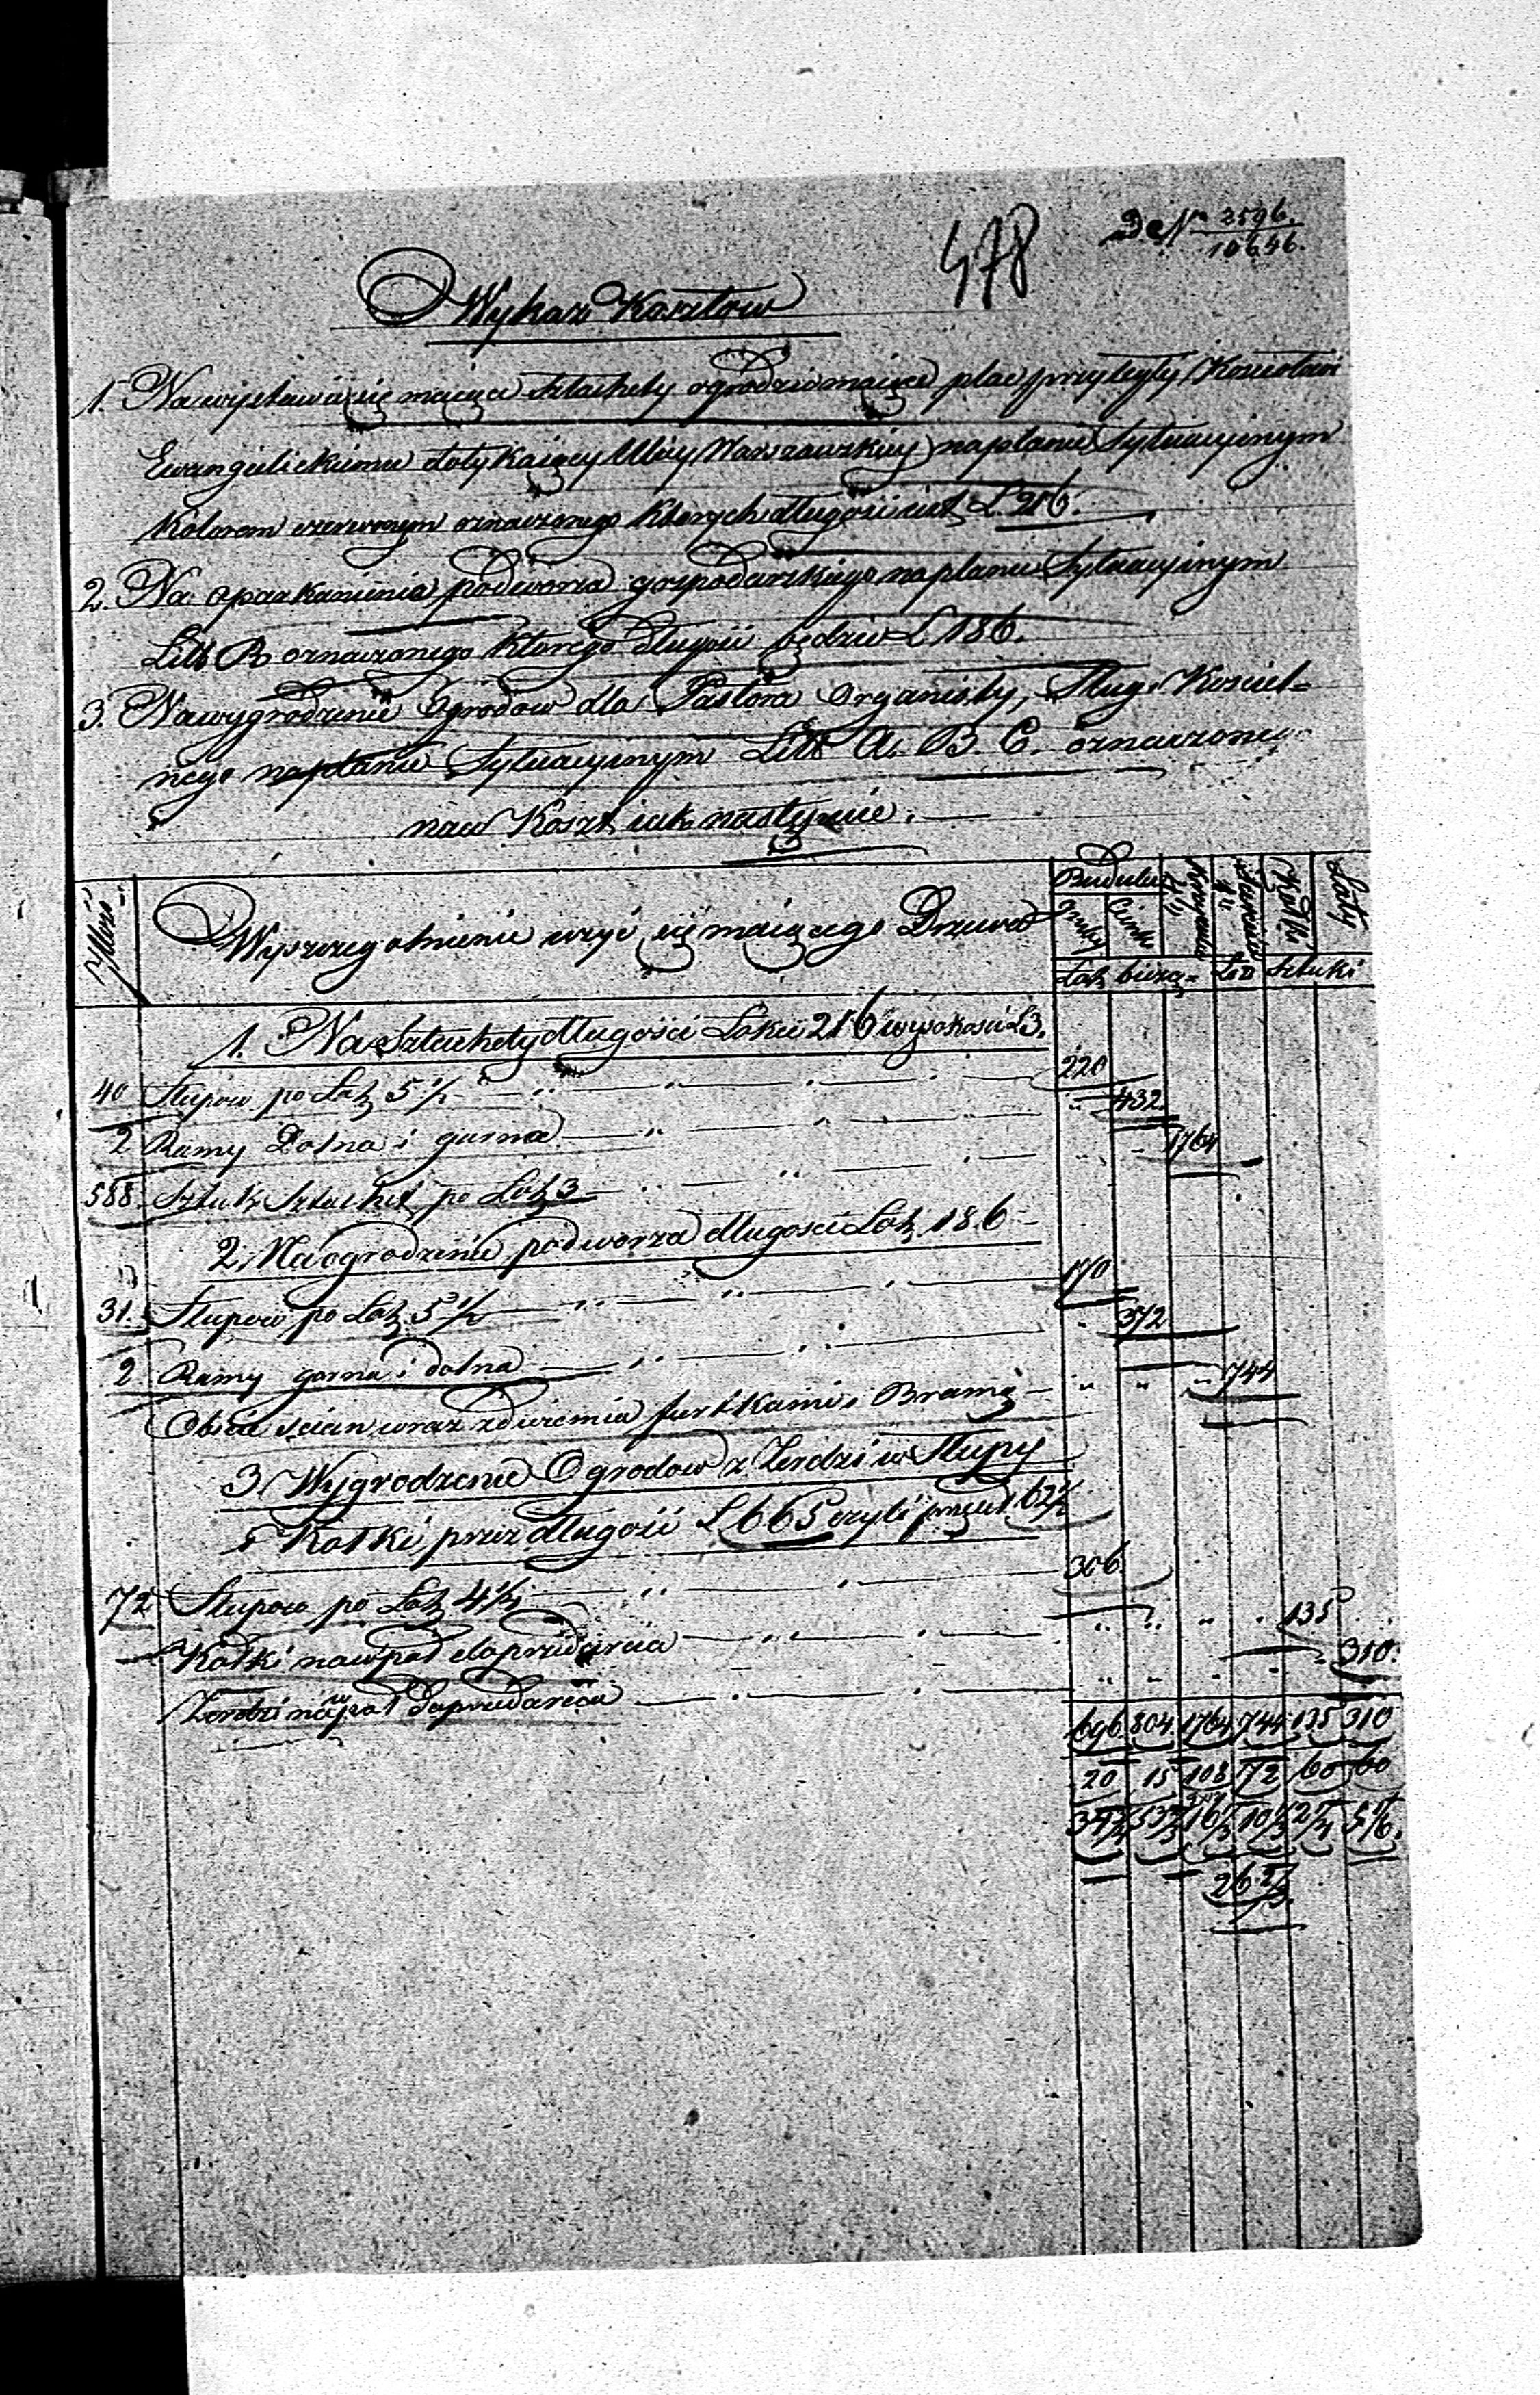 478
De Nr 2596.
10646.
Wykaz Kosztow
1. Na wystawić się maiące Sztachety ogrodzić maiące plac przyległy Kosciołowi
Ewangielickiemu dotykaiący Ulicy Warszawskiey na planie Sytuacyinym
Kolorem czerwonym oznaczonego ktorych długość iest Ł 216.
2. Na oparkanienie podworza gospodarskiego na planie Sytuacyinym
Litt B oznaczonego ktorego długość będzie Ł 186.
3. Na wygrodzenie Ogrodow dla Pastora Organisty, Sługi Kościel=
nego na planie Sytuacyinym Litt A. B. C. oznaczonego
Koszt iak następuie.
Ilość
Wyszczegolnienie użyć się maiącego Drzewa
Budulcu
Łok bieżą=
Łok
Sztuki
Kołki
Łaty
1. Na Sztachety długości Łokci 216 wysokości Ł 3.
40 Słupow po Łok 5 1/2 220
2 Ramy Dolna i gurna 432
588 Sztuk Sztachet po Łok 3 1764
2. Na ogrodzenie podworza długości Łok 186
31. Słupow po Łok 5 1/2 170
2 Ramy gorna i dolna 372
Obicie ścian wraz z dwiema furtkami i Bramą 744
3 Wygrodzenie Ogrodow z Żerdzi w Słupy
i Kołki przez długość Ł 665 czyli pręt 62
72 Słupow po Łok 4 1/4 306.
Kołki 135
Żerdzi 310.
696. 804. 1764 744 135 310
20 15 108 72 60 60
34 4/5 53 3/5 16 1/3 10 1/3 2 1/4 5 1/6.
26 2/3.